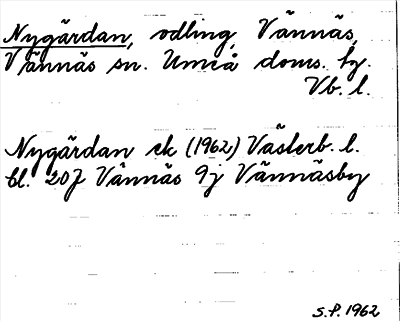 Nygärdan, odling, Vännäs,
Vännäs sn. Umeå doms. hy.
Vb. l.
Nygärdan ek (1962) Västerb. l.
bl. 20J Vännäs 9j Vännäsby
S.P. 1962